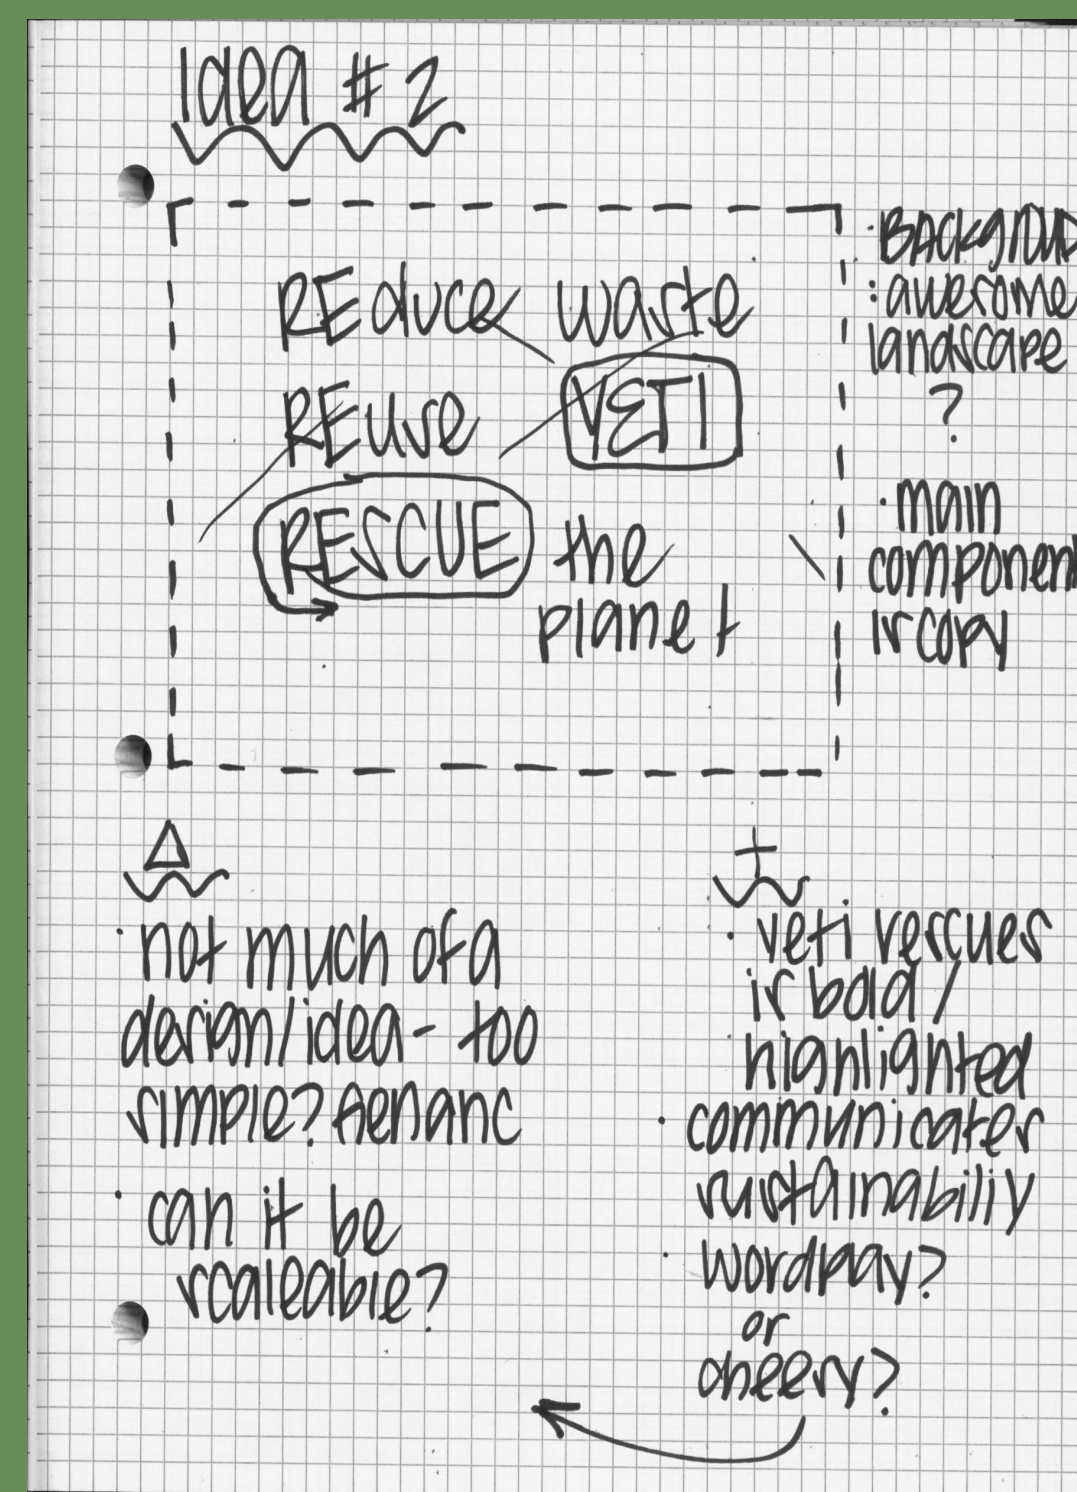 Idea #2
REduce waste
REuse YETI
RESCUE the
planet
· BACkgroUn
: awesome
landscape
?
· main
component
is copy
Δ
· not much of a
design/idea - too
simple?
· can it be
scaleable?
+
· yeti rescues
is bold/
highlighted
· communicates
sustainabiliy
· wordplay?
or
cheery?